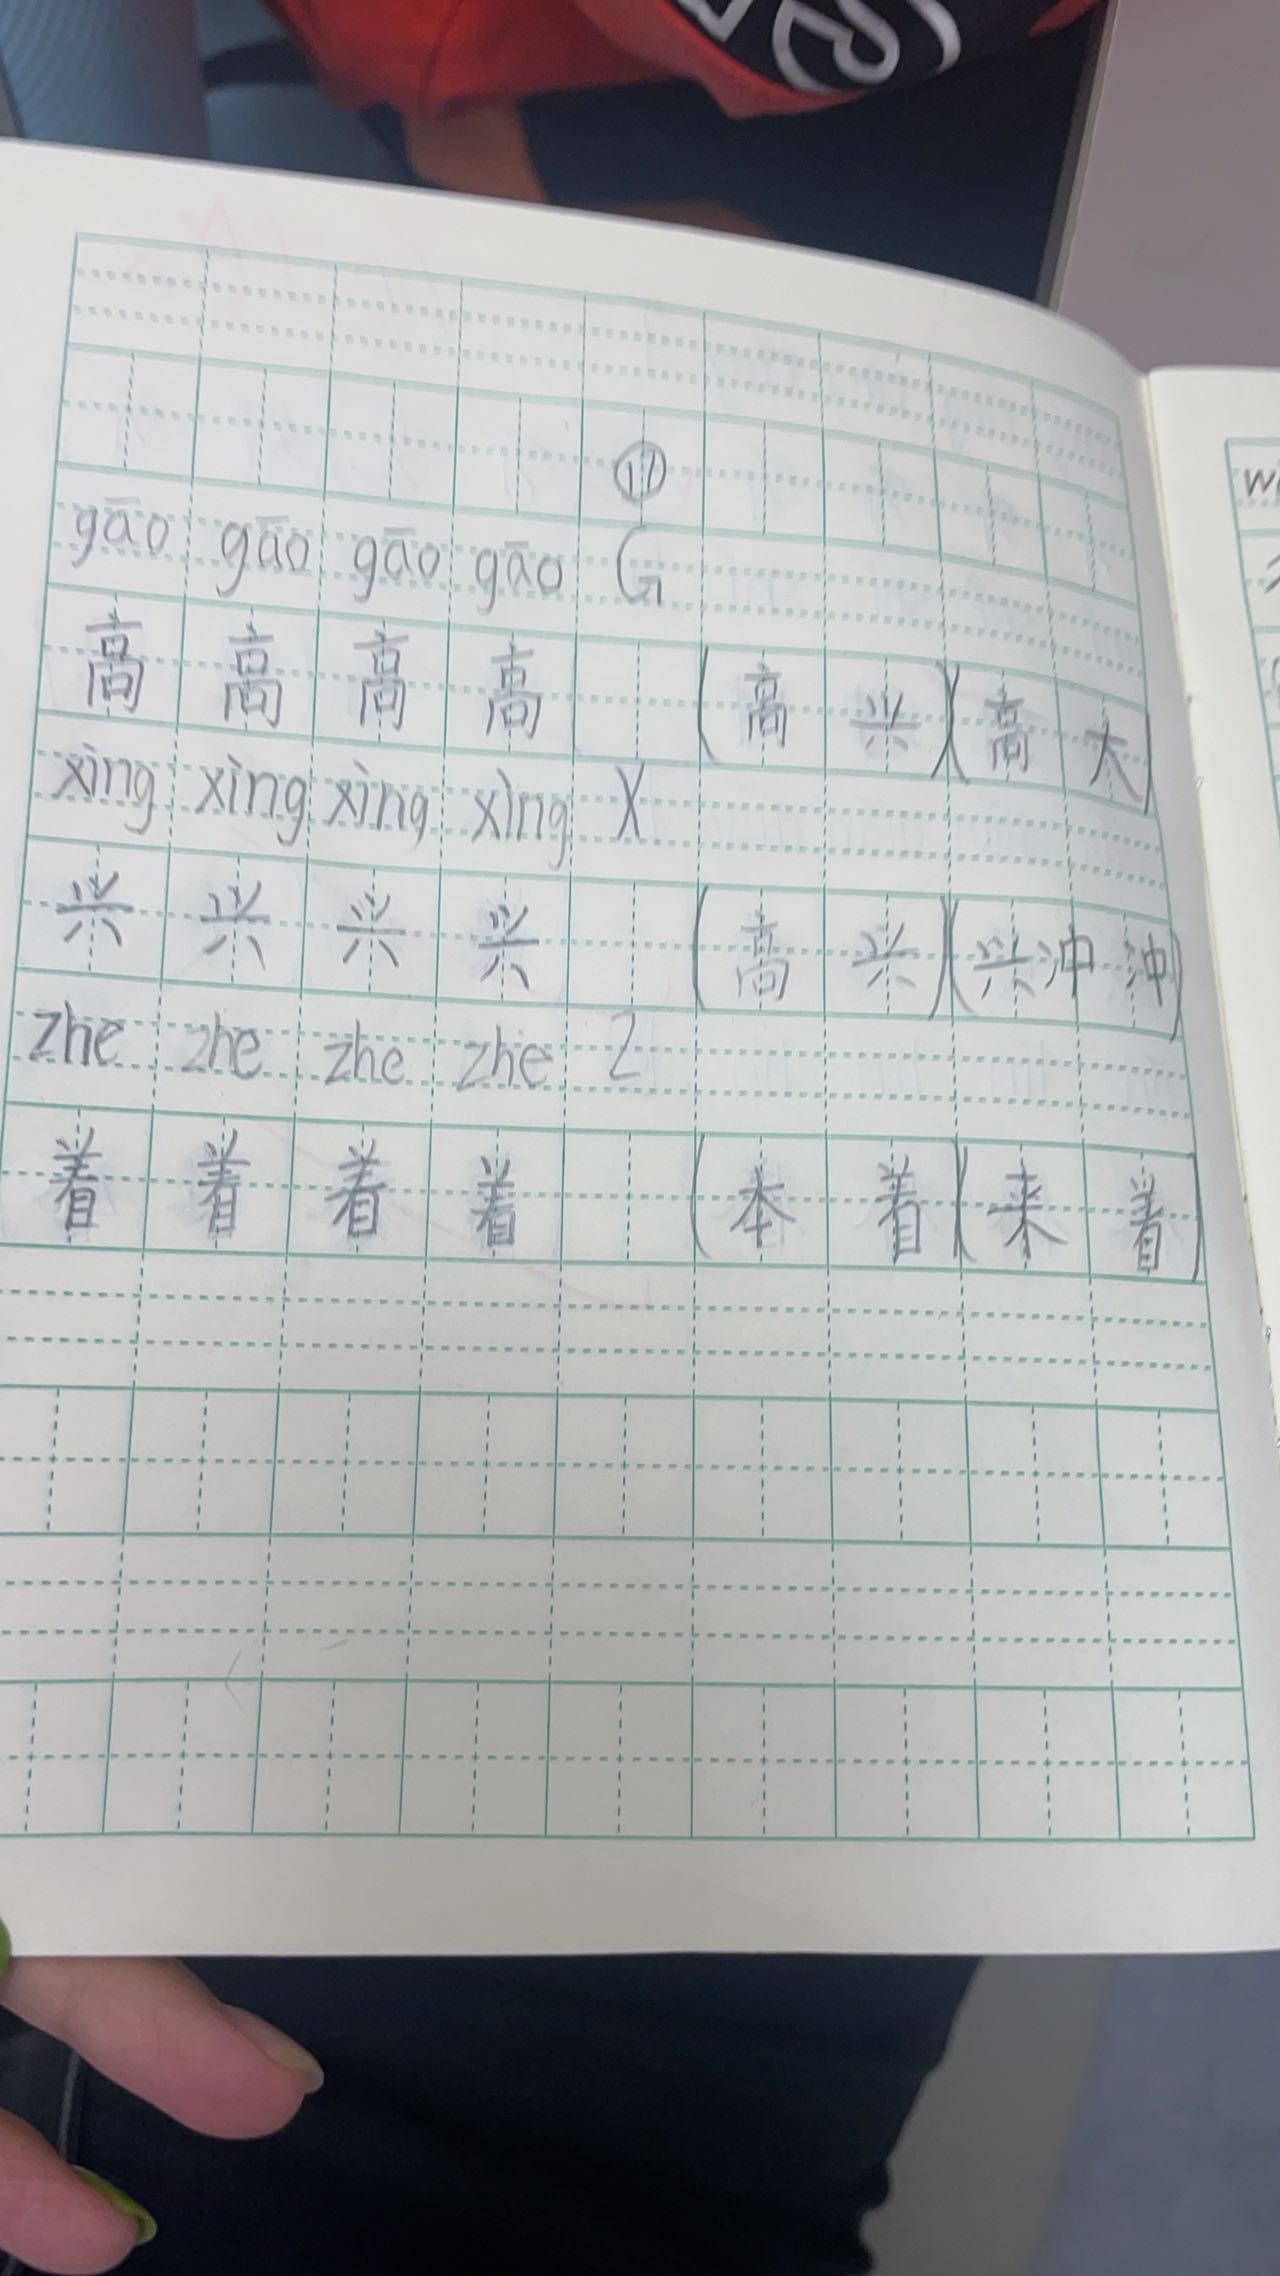 ⑪
gāo gāo gāo gāo G
高 高 高 高 (高 兴)(高 大)
xìng xìng xìng xìng X
兴 兴 兴 兴 (高 兴)(兴冲 冲)
zhe zhe zhe zhe Z
着 着 着 着 (本 着)(来 着)